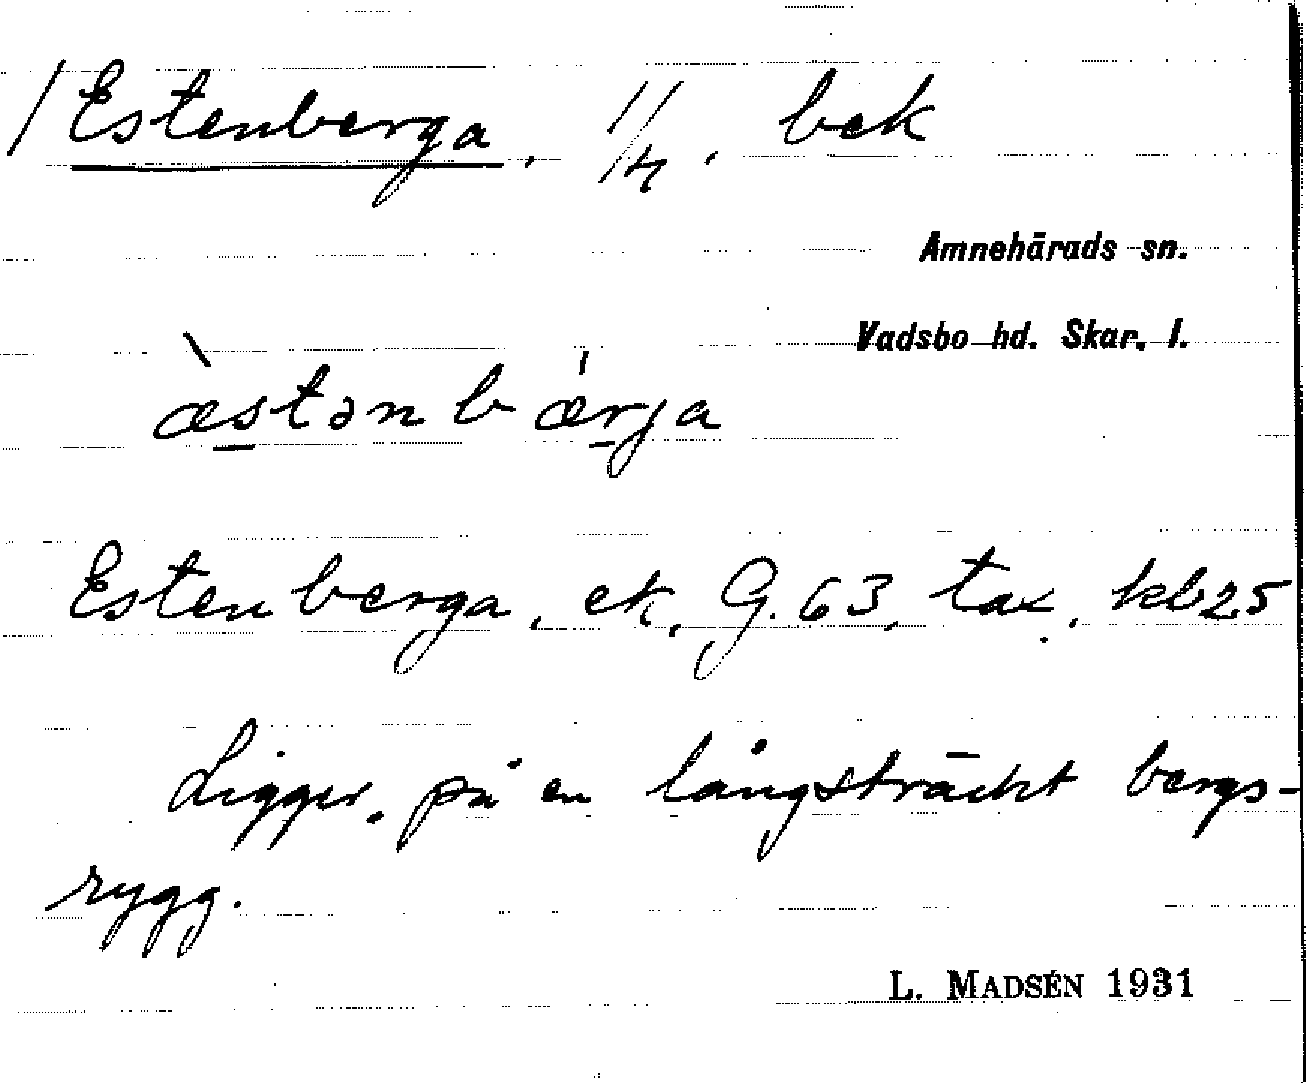 / Estenberga, 1/4, bek
Amnehärads sn.
Vadsbo hd. Skar. l.
æ̀stən bǽrja
Estenberga, ek, G. 63, tax., kb 25
Ligger på en långsträckt bergs-
rygg.
L. MADSÉN 1931